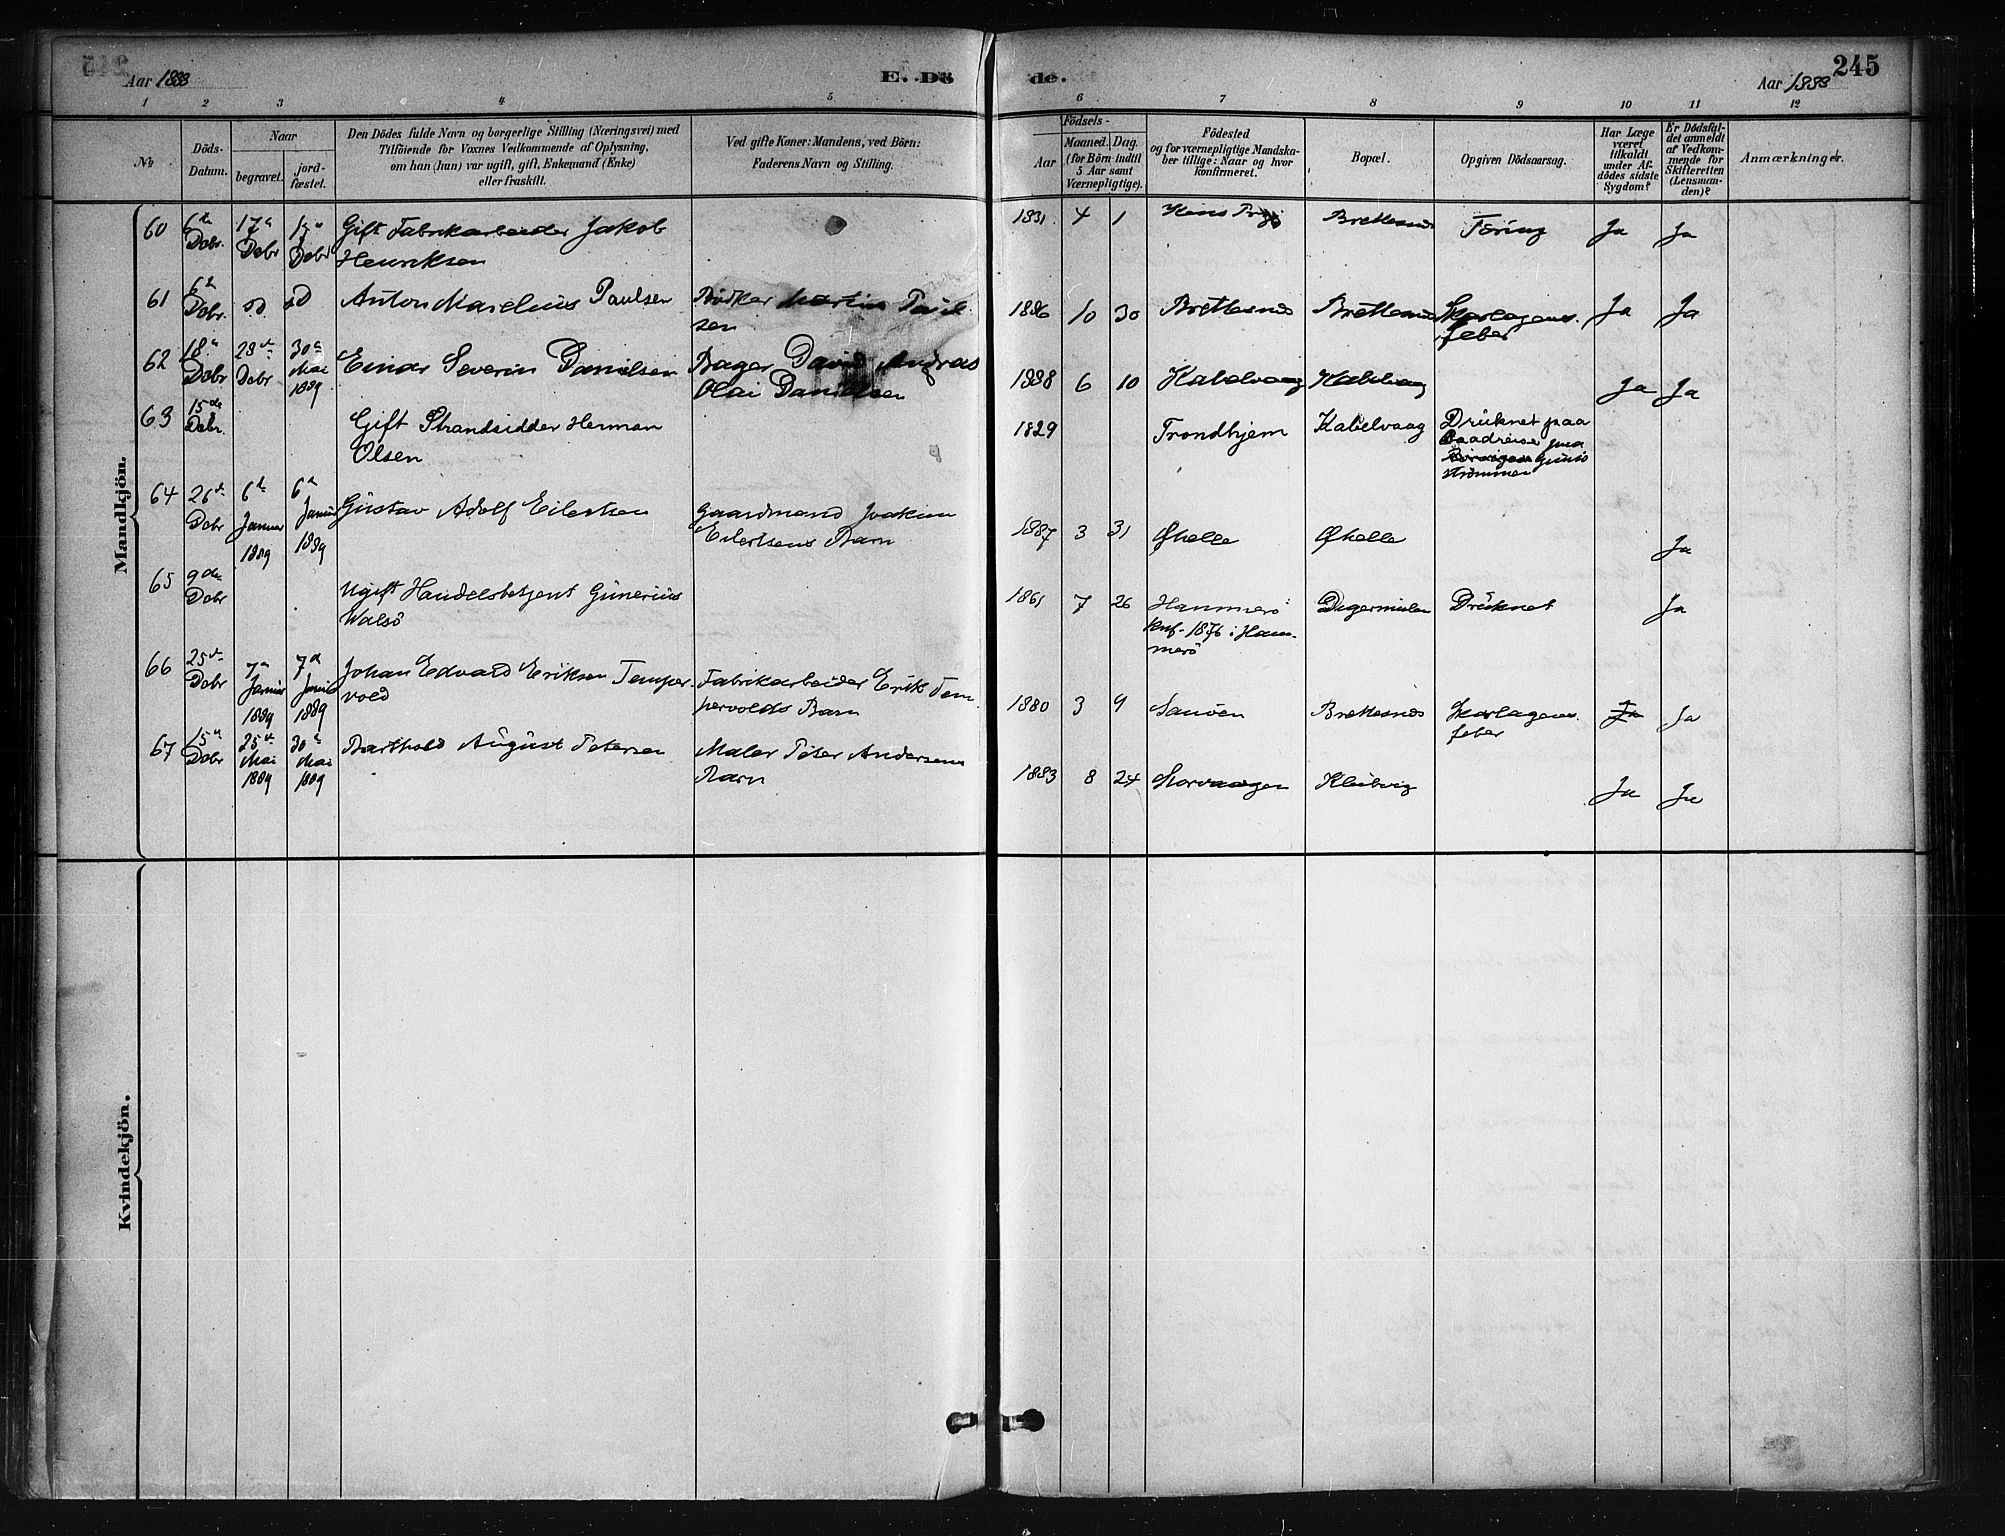 245
Aar 1888
E. Dö
de.
Aar 1888
1 2 3 4 5 6 7 8 9 10 11 12
No
Döds-
Datum.
Naar
begravet.
jord-
fæstet.
Den Dödes fulde Navn og borgerlige Stilling (Næringsvei) med
Tilföiende for Voxnes Vedkommende af Oplysning,
om han (hun) var ugift, gift, Enkemand (Enke)
eller fraskilt.
Ved gifte Koner: Mandens, ved Börn:
Faderens Navn og Stilling.
Födsels-
Aar
Maaned.
Dag.
(for Börn indtil
5 Aar samt
Værnepligtige).
Födested
og for værnepligtige Mandska-
ber tillige: Naar og hvor
konfirmeret.
Bopæl.
Opgiven Dödsaarsag.
Har Læge
været
tilkaldt
under Af-
dödes sidste
Sygdom?
Er Dödsfal-
det anmeldt
af Vedkom-
mende for
Skifteretten
(Lensman-
den)?
Anmærkninger.
Mandkjön.
60 6te Debr 17de Debr 17de Debr Gift Fabrikarbeider Jakob
Henriksen
1831 4 1 Brettesnes Tæring Ja Ja
61 6te Debr. do do Anton Marelius Paulsen Bødker Martin Paul
sen
1886 10 30 Brettesnes Brettesnes Skarlagens
feber Ja Ja
62 18de Debr 28de Debr 30te Mai 1889 Einar Severin Danielsen Bager David Andreas
Olai Danielsen
1888 6 10 Kabelvaag Kabelvaag Ja Ja
63 15de Debr. Gift Strandsidder Herman
Olsen
1829 Trondhjem Kabelvaag Druknet paa
Baadreise paa
Gimsö
strømmen
64 26de Debr 6te Januar 1889 6te Januar 1889 Gustav Adolf Eilertsen Gaardmand Joakim
Eilertsens Barn
1887 3 31 Øhelle Øhelle Ja
65 9de Debr Ugift Handelsbetjent Gunerius
Walsö
1861 7 26 Hammerö
Knf. 1876 i Ham-
merö
Digermulen Druknet Ja
66 25de Debr 7de Januar 1889 7de Januar 1889 Johan Edvard Eriksen Temper-
vold
Fabrikarbeider Erik Tem
pervolds Barn
1880 3 9 Brettesnes Skarlagens
feber Ja Ja
67 15de Debr 25de Mai 1889 30te Mai 1889 Barthold August Petersen Maler Peter Andersens
Barn
1883 8 24 Storvaagen Kleibvig Ja Ja
Kvindekjön.